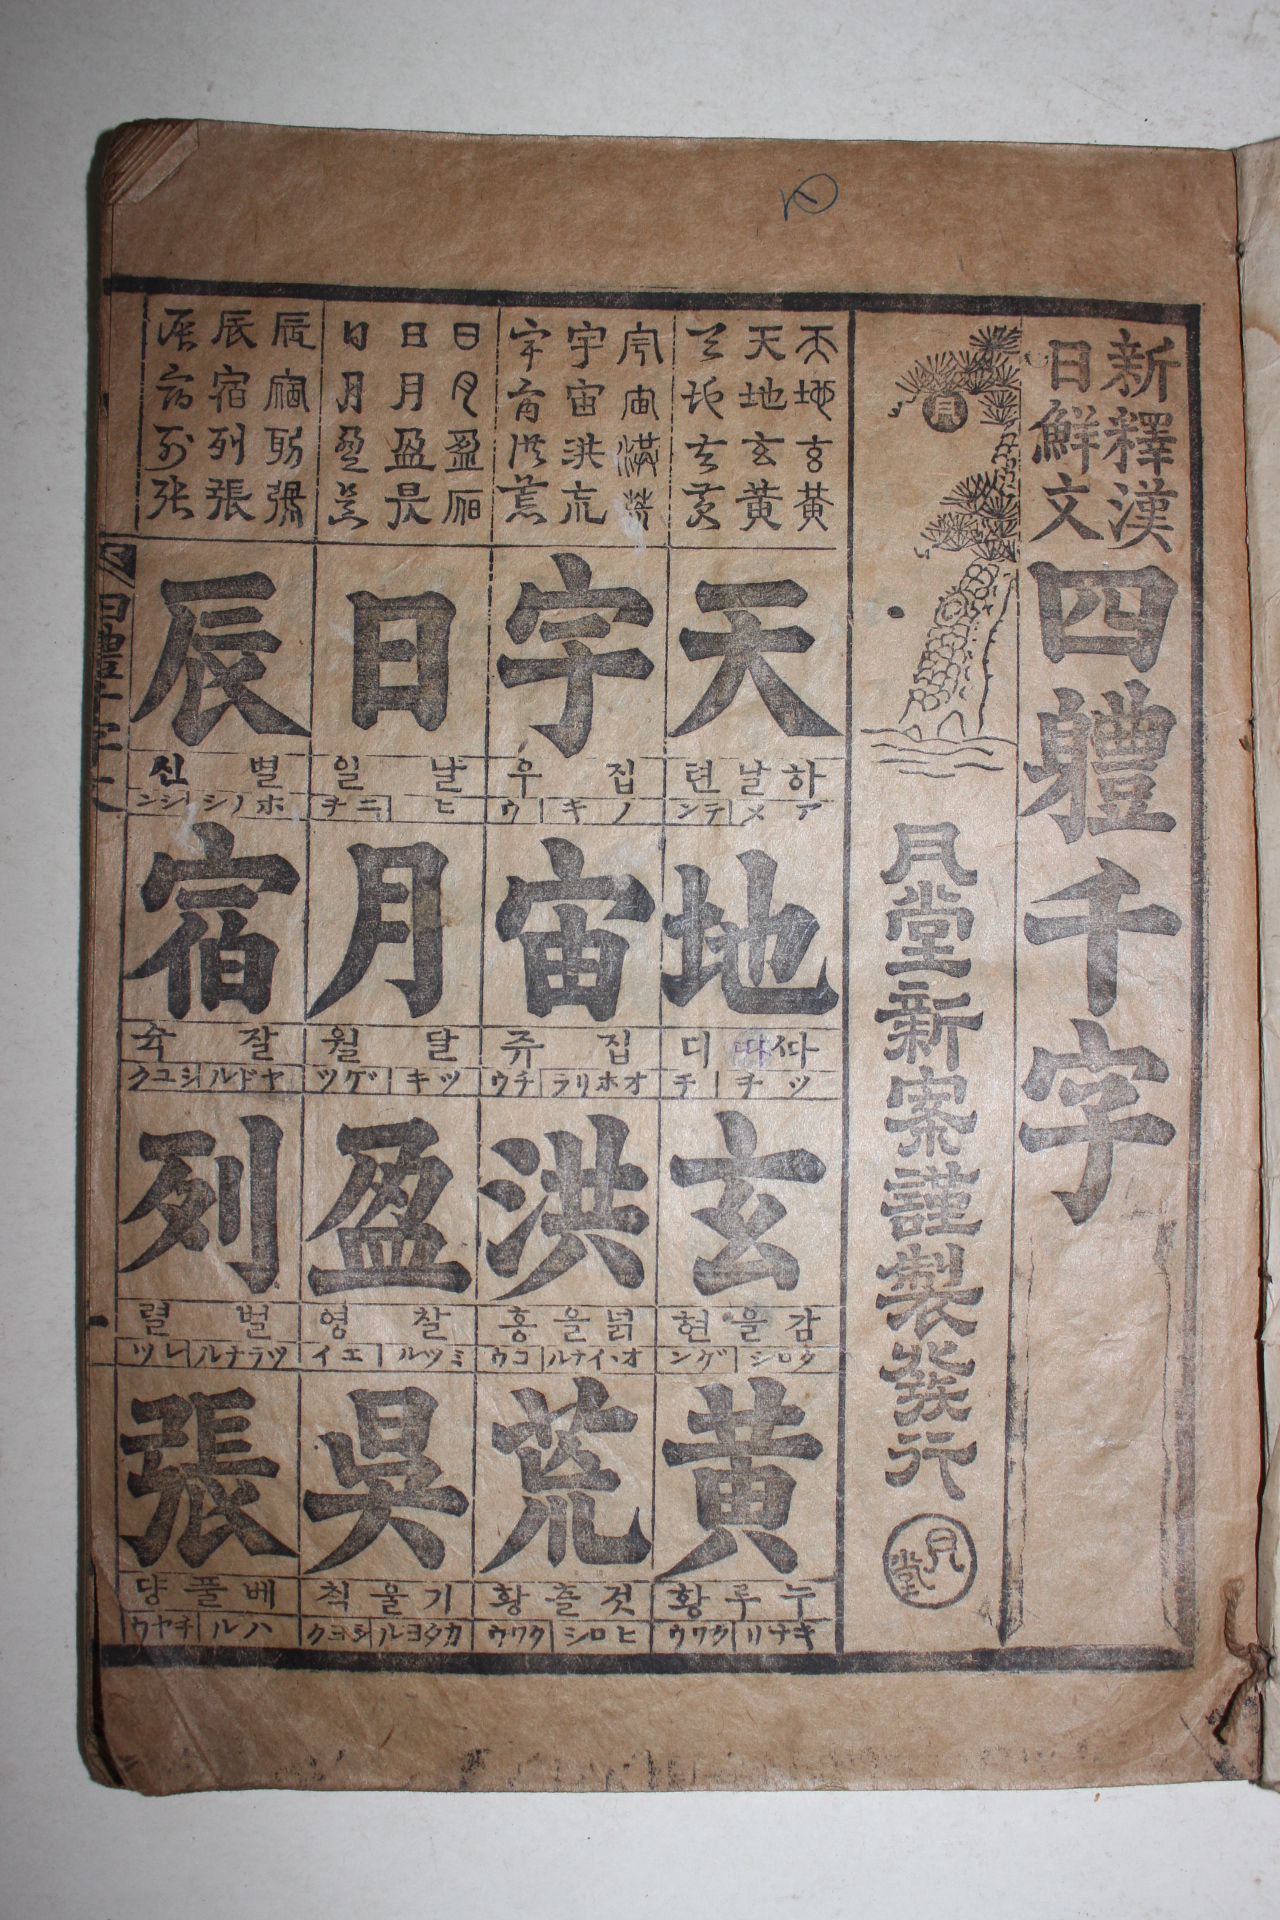 新釋漢
日鮮文
四體千字
月
月堂新案謹製發行
月堂
天地玄黃
天地玄黃
天地玄黃
宇宙洪荒
宇宙洪荒
宇宙洪荒
日月盈昃
日月盈昃
日月盈昃
辰宿列張
辰宿列張
辰宿列張
天
하날 텬
アメ テン
地
따 디
ツチ チ
玄
감을 현
クロシ ゲン
黃
누루 황
キナリ クワウ
宇
집 우
ノキ ウ
宙
집 쥬
オホリラ チウ
洪
넓을 홍
オイナル コウ
荒
것츨 황
ヒロシ クワウ
日
날 일
ヒ ニチ
月
달 월
ツキ ゲツ
盈
찰 영
ミツル エイ
昃
기울 칙
カタヨル ショク
辰
별 신
ホノシ シン
宿
잘 슉
ヤドル シユク
列
벌 렬
ツラナル レツ
張
베풀 댱
ハル チヤウ
四體千字
一